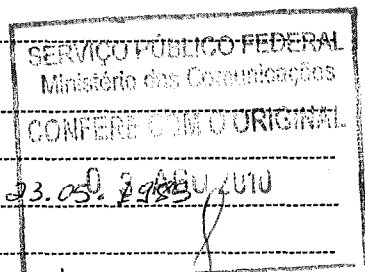 SERVIÇO PÚBLICO FEDERAL
Ministério das Comunicações
CONFERE COM O ORIGINAL
23.05.1989
0 2 AGO 2010